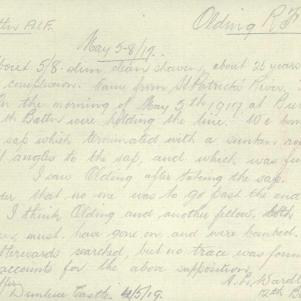 Battn A.I.F. Olding R.F
May 5-8/17.
about 5/8. slim, clean shaven, about 26 years
complexion. Came from St Patrick's River,
On the morning of May 5th 1917 at Bu
th Battn were holding the line. 10 e bom
sap which terminated with a sunken
t angles to the sap, and which was fu
I saw Olding after taking the sap.
der that no one was to go past the end
I think Olding and another fellow, both
must have gone on and were bombed.
terwards searched, but no trace was foun
accounts for the above supposition.
Dunluce Castle 4/5/19. 12th B